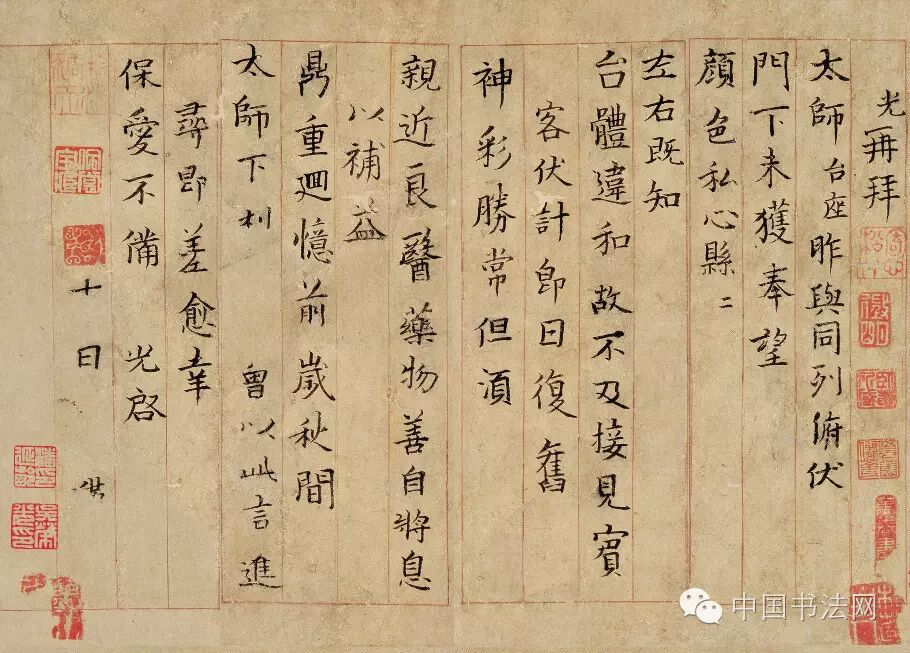 光再拜
太師台座昨與同列俯伏
門下未獲奉望
顏色私心縣〻
左右既知
台體違和故不及接見賓
客伏計即日復舊
神彩勝常但湏
親近良醫藥物善自將息
以補益
鼎重迴憶前歲秋間
太師下利 曾以此言進
尋即差愈幸
保愛不備 光啓
十日
中国书法网